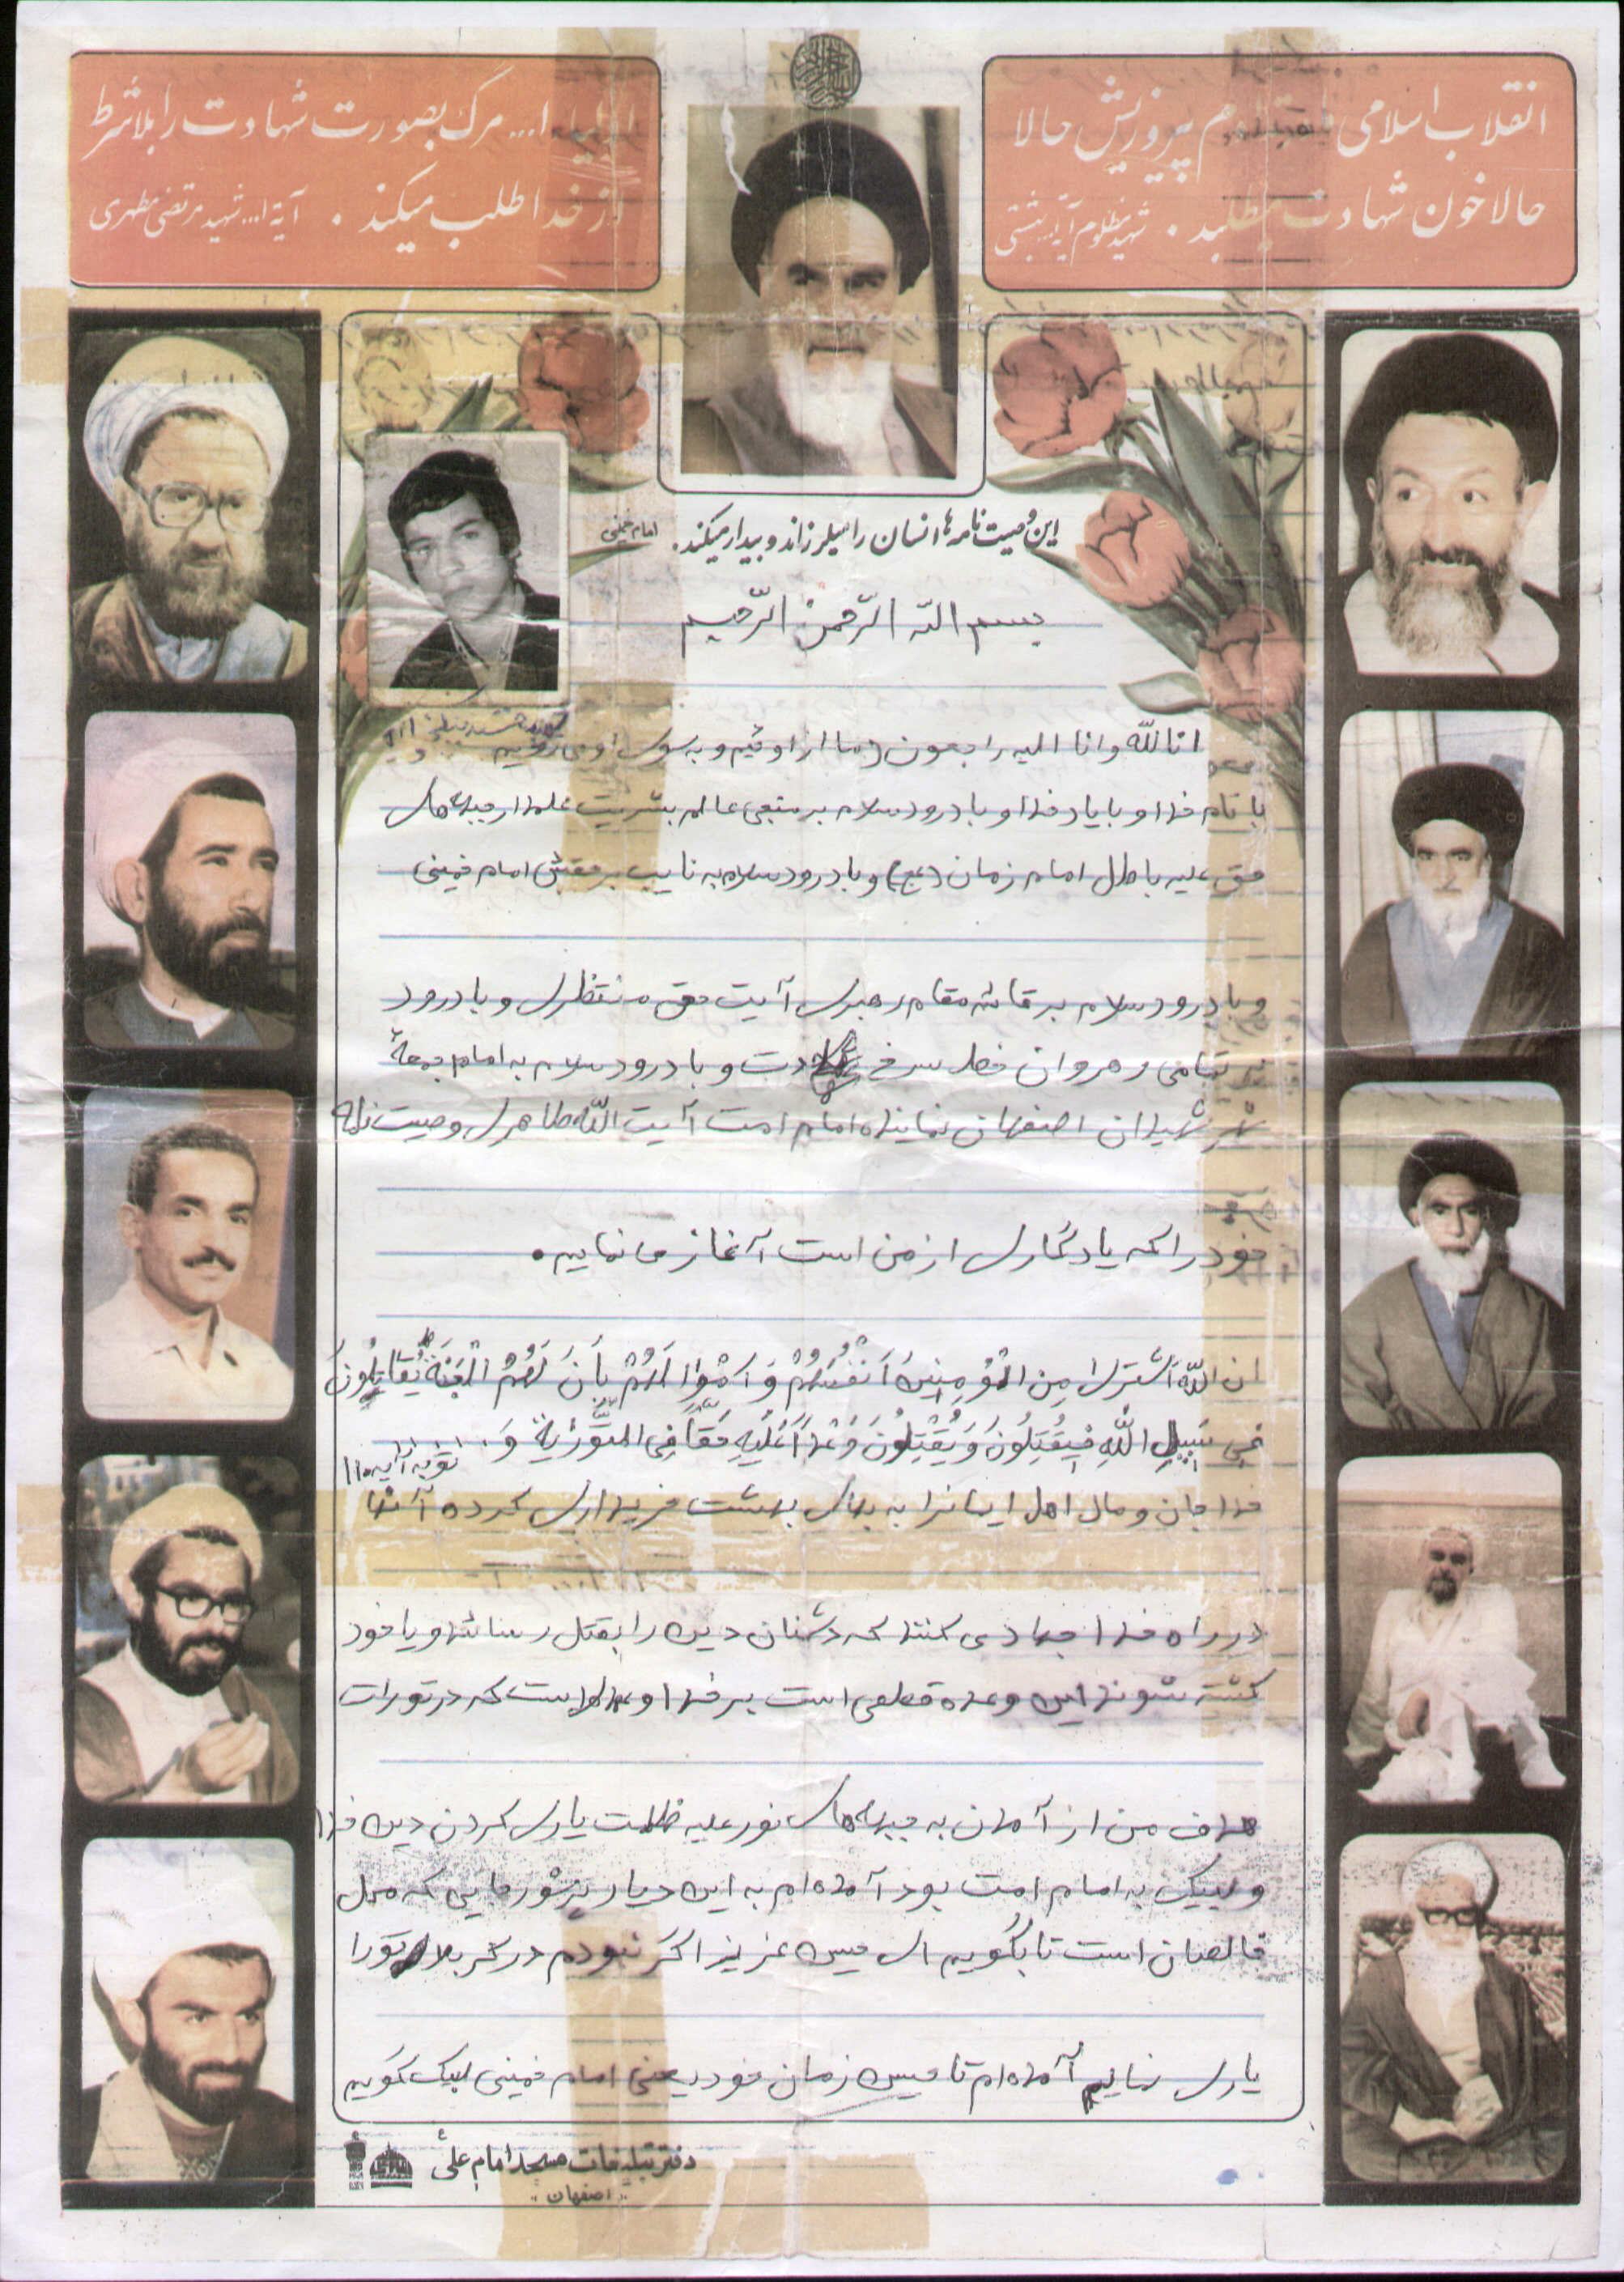 انقلاب اسلامی پیروزیش حالا
حالا خون شهادت میطلبد . شهید مظلوم آیة... بهشتی
اولیاء ا... مرگ بصورت شهادت را بلاشرط
از خدا طلب میکند . آیة ا... شهید مرتضی مطهری
این وصیت نامه ها انسان را میلرزاند و بیدار میکند. امام خمینی
بسم الله الرحمن الرحیم
انا لله وانا الیه راجعون (ما از اوئیم و به سوی او می رویم
با نام خدا و با یاد خدا و با درود سلام بر منجی عالم بشریت علمدار جبهه های
حق علیه باطل امام زمان (عج) و با درود سلام به نایب بر حقش امام خمینی
و با درود سلام بر قائم مقام رهبری آیت حق منتظری و با درود
بر تمامی رهروان خط سرخ شهادت و با درود سلام به امام جمعهٔ
شهر شهیدان اصفهان نماینده امام امت آیت الله طاهری وصیت نامه
خود را که یادگاری از من است آغاز می نماییم.
ان اللهَ اشْتَری مِنَ المُؤمِنینَ اَنفُسَهُمْ وَ اَمْوالَهُمْ بِاَنَ لَهُمُ الْجَنَةَ یُقاتِلُونَ
فی سَبیلِ اللهِ فَیَقْتُلُونَ وَ یُقْتَلُونَ وَعْداً عَلَیهِ حَقاً فِی التَّوریةِ وَ .... توبه آیه ۱۱۱
خدا جان و مال اهل ایمانرا به بهای بهشت خریداری کرده آنها
در راه خدا جهاد می کنند که دشمنان دین را بقتل رسانند و یا خود
کشته شوند این وعده قطعی است بر خدا و عهدیست که در تورات
هدف من از آمدن به جبهه های نور علیه ظلمت یاری کردن دین خدا
و لبیک به امام امت بود آمده ام به این دیار پرشور جایی که محل
خالصان است تا بگویم ای حسین عزیز اگر نبودم در کربلا تو را
یاری نمایم آمده ام تا حسین زمان خود یعنی امام خمینی لبیک گویم
دفتر تبلیغات مسجد امام علی
اصفهان